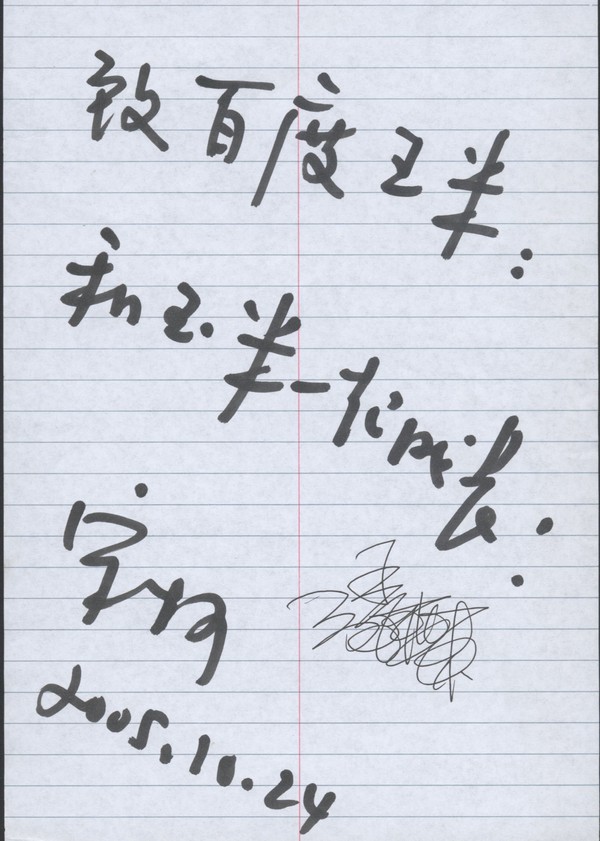 致百度玉米:
和玉米一起成长.
宋柯
2005.10.24